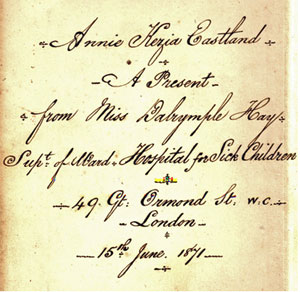 Annie Kezia Eastland
A Present
from Miss Dalrymple Hay
Supt. of Ward. Hospital for Sick Children
49 Gt: Ormond St. W.C.
London
15th June. 1871